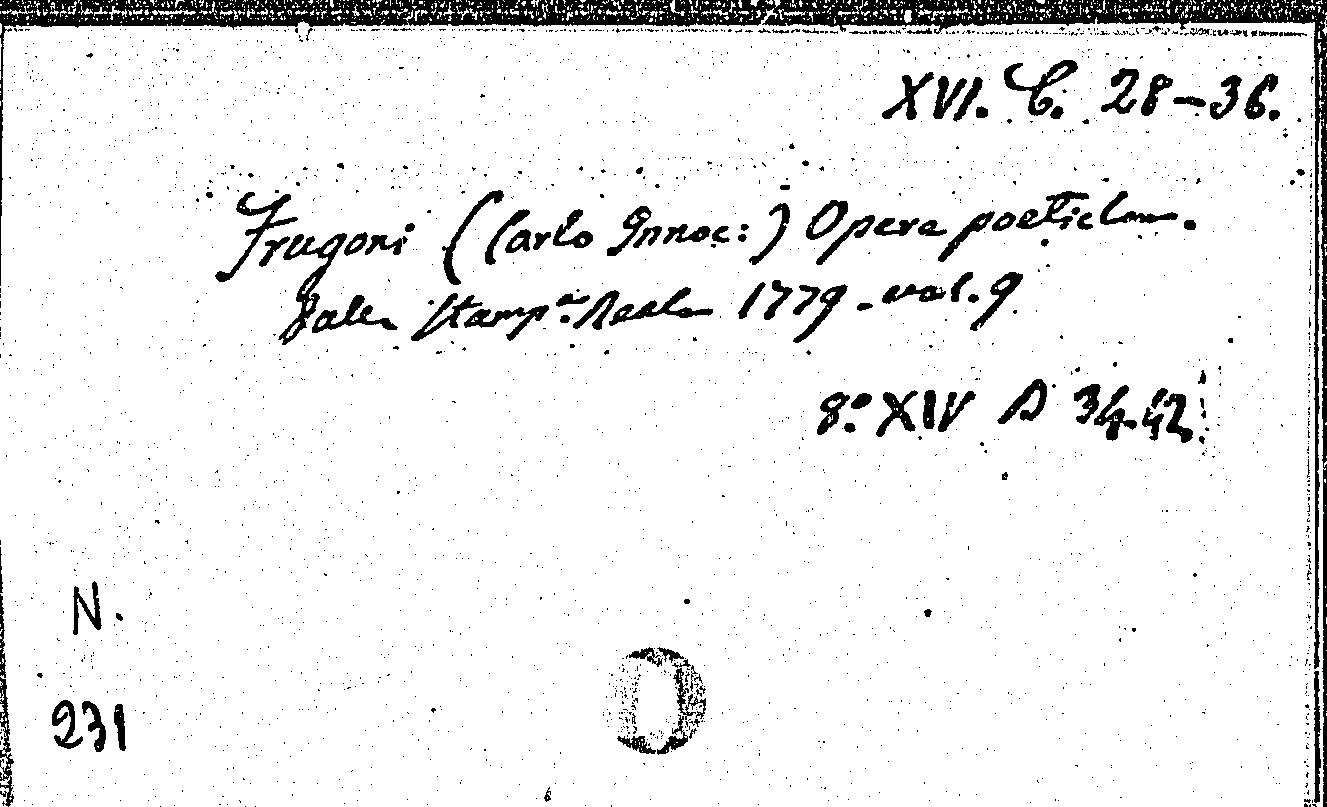 XVI. C. 28-36.
Frugoni (Carlo Innoc:) Opere poetiche.
Stamp.ª Reale 1779. vol. 9
8.º XIV D 34.42
N.
231